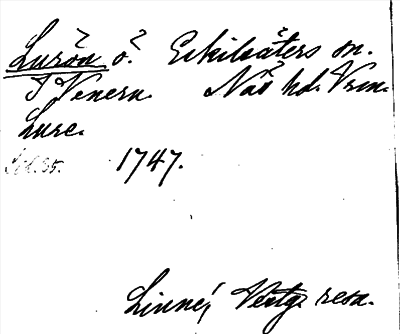 Lurön ö. Eskilsäters sn.
I Venern. Näs hd. Vrm.
Lurc.
Sid. 35. 1747.
Linné, Västg. resa.